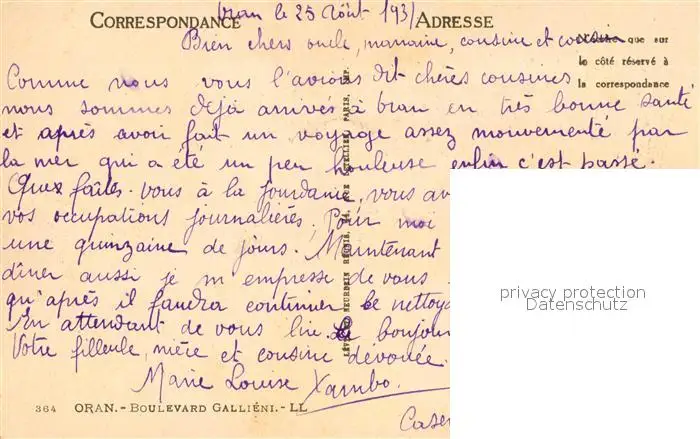 CORRESPONDANCE
Oran le 25 Août 1931
ADRESSE
Bien chers oncle, marraine, cousine et cousin
que sur
le côté réservé à
la correspondance
Comme nous vous l'avions dit chères cousines
nous sommes déjà arrivés à Oran en très bonne santé
et après avoir fait un voyage assez mouvementé par
la mer qui a été un peu houleuse enfin c'est passé.
Que faites-vous à la Jourdanie, vous av
vos occupations journalières. Pour moi
une quinzaine de jours. Maintenant
dîner aussi je m'empresse de vous
qu'après il faudra continuer le nettoya
En attendant de vous lire le bonjour
Votre filleule, nièce et cousine dévouée.
Marie Louise Xambo.
LÉVY ET NEURDEIN RÉUNIS, 44, RUE LETELLIER, PARIS, IMP.
364 ORAN.- BOULEVARD GALLIÉNI.- LL
Caser
privacy protection
Datenschutz